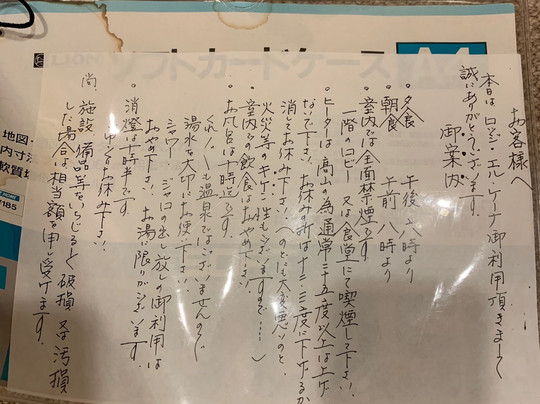 お客様へ
本日はロッジ・エル・ケーナ御利用頂きまして
誠にありがとうございます。
御案内
・夕食 午後 六時より
・朝食 午前 八時より
・室内では全面禁煙です。
一階のロビー又は食堂にて喫煙して下さい。
・ヒーターは高山の為通常二十五度以上は上げ
ないで下さい。お休みの折は十二、三度に下げるか
消してお休み下さい。(のどにも大変悪いのと、
火災等のキケン性もございますので…)
・室内での飲食はおやめ下さい。
・お風呂は十時迄です。
くれぐれも温泉ではございませんので
湯水を大切にお使い下さい。
シャワー、ジャロの出し放しの御利用は
おやめ下さい。お湯に限りがございます。
・消燈は十時半です。
ごゆっくりお休み下さい。
尚、施設、備品等をいちじるしく破損又は汚損
した場合は相当額を申し受けます。
ソフトカードケース
A4
地図・
内寸
軟質